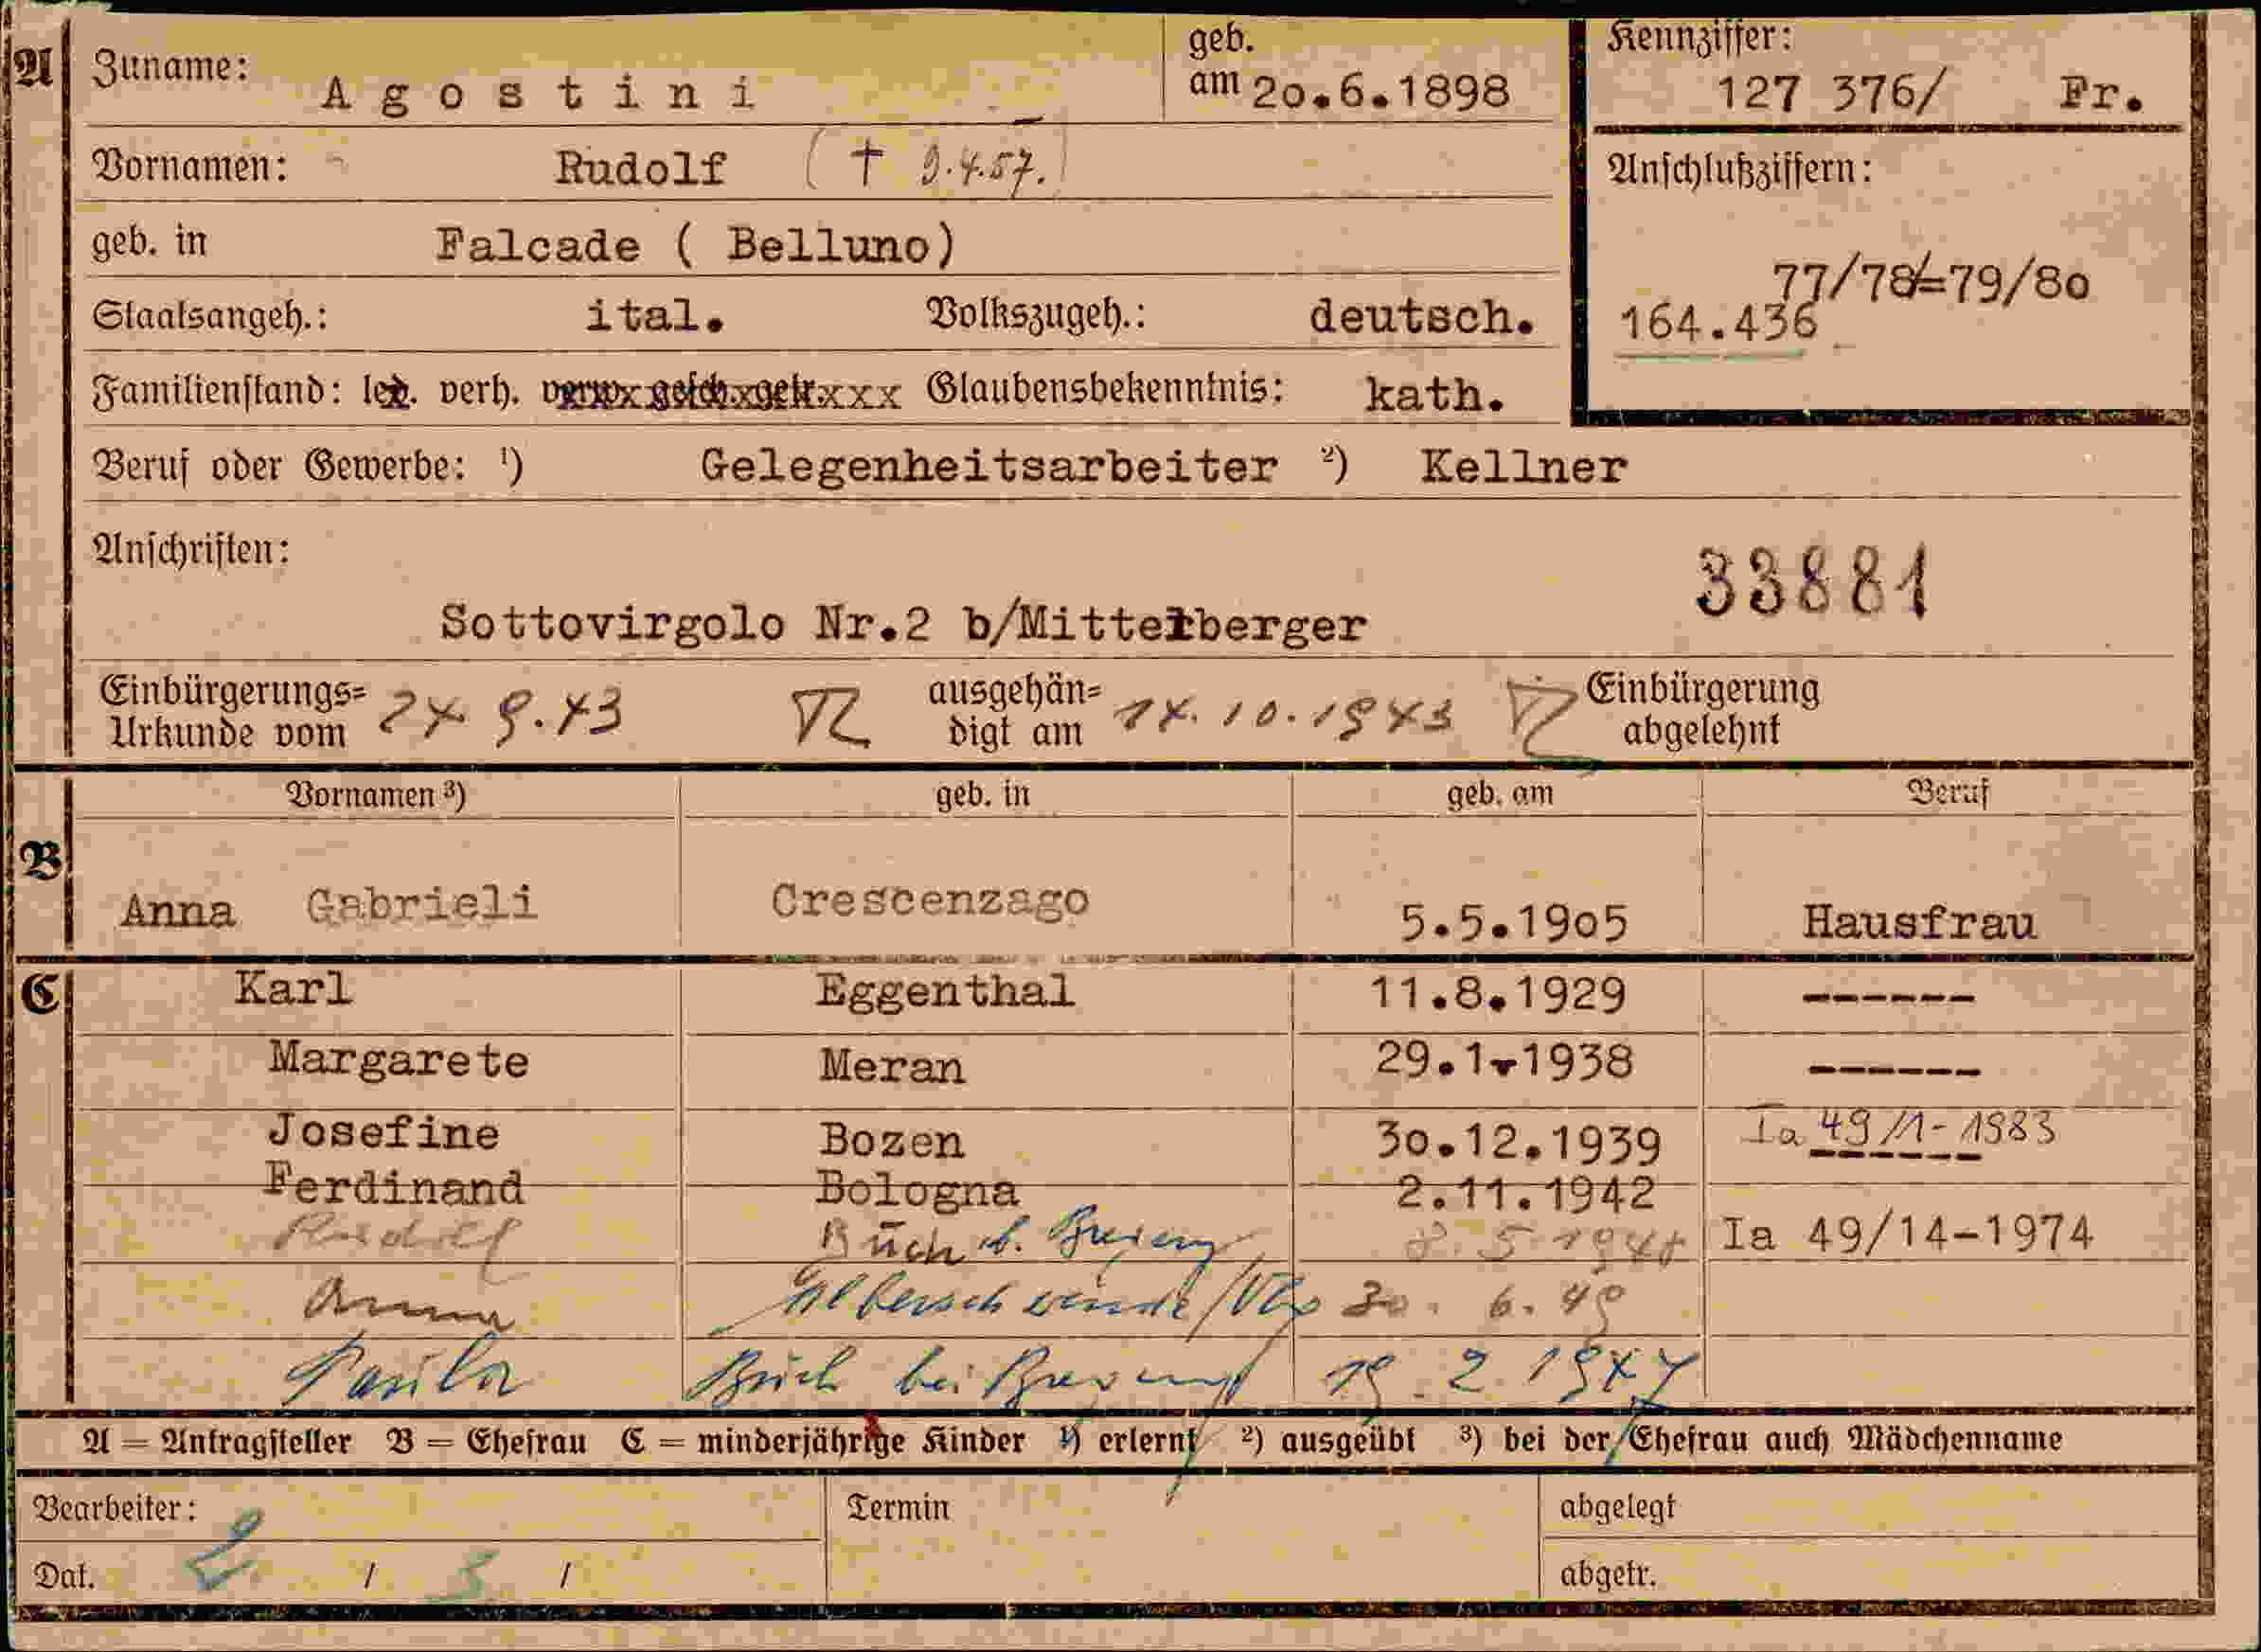 A Zuname: Agostini geb. am 20.6.1898 Kennziffer: 127 376/ Fr.
Vornamen: Rudolf († 9.4.57.) Anschlußziffern:
geb. in Falcade ( Belluno) 77/78/=79/80
Staatsangeh.: ital. Volkszugeh.: deutsch. 164.436
Familienstand: led. verh. verw. gesch. getr. xxx Glaubensbekenntnis: kath.
Beruf oder Gewerbe: ¹) Gelegenheitsarbeiter ²) Kellner
Anschriften: 33881
Sottovirgolo Nr.2 b/Mitterberger
Einbürgerungs= Urkunde vom 24 9.43 ausgehän= digt am 14.10.1943 Einbürgerung abgelehnt
Vornamen ³) geb. in geb. am Beruf
B Anna Gabrieli Crescenzago 5.5.1905 Hausfrau
C Karl Eggenthal 11.8.1929 ------
Margarete Meran 29.1.1938 ------
Josefine Bozen 30.12.1939 Ia 49/1-1983 ------
Ferdinand Bologna 2.11.1942
Rudolf Buch b. Bregenz 5 Ia 49/14-1974
Anna 30. 6. 49
Paula Buch bei Bregenz 19.2.1947
A = Antragsteller B = Ehefrau C = minderjährige Kinder ¹) erlernt ²) ausgeübt ³) bei der Ehefrau auch Mädchenname
Bearbeiter: Termin abgelegt
Dat. / / abgetr.